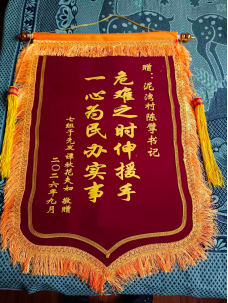 赠：泥湾村陈擘书记
危难之时伸援手
一心为民办实事
七组于先卫谭秋花夫妇 敬赠
二〇二六年九月